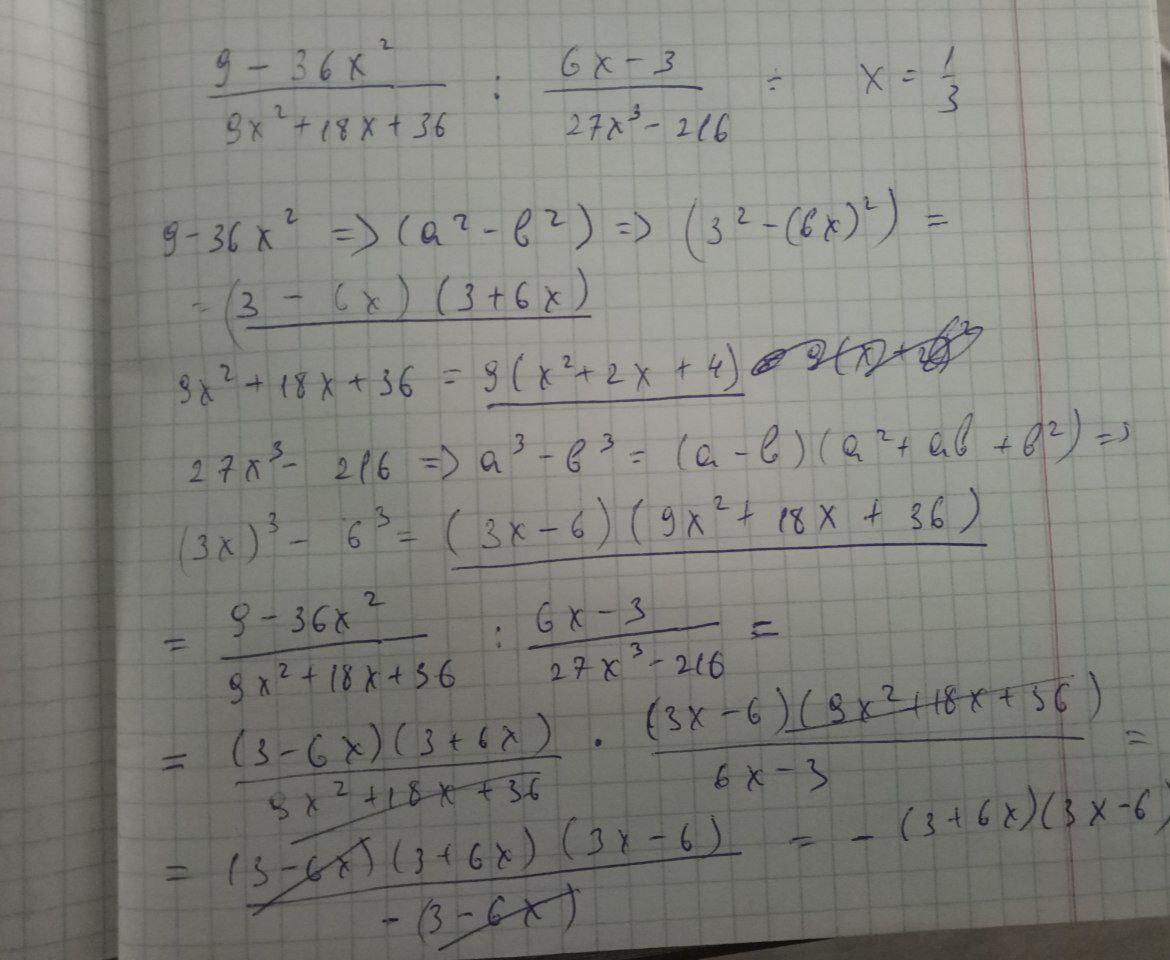 9 - 36x² / 9x² + 18x + 36 : 6x - 3 / 27x³ - 216 ÷ x = 1/3
9 - 36x² => (a² - b²) => (3² - (6x)²) =
= (3 - 6x) (3 + 6x)
9x² + 18x + 36 = 9(x² + 2x + 4)
27x³ - 216 => a³ - b³ = (a - b)(a² + ab + b²) =>
(3x)³ - 6³ = (3x - 6)(9x² + 18x + 36)
= 9 - 36x² / 9x² + 18x + 36 : 6x - 3 / 27x³ - 216 =
= (3 - 6x)(3 + 6x) / 9x² + 18x + 36 · (3x - 6)(9x² + 18x + 36) / 6x - 3 =
= (3 - 6x)(3 + 6x)(3x - 6) / -(3 - 6x) = -(3 + 6x)(3x - 6)